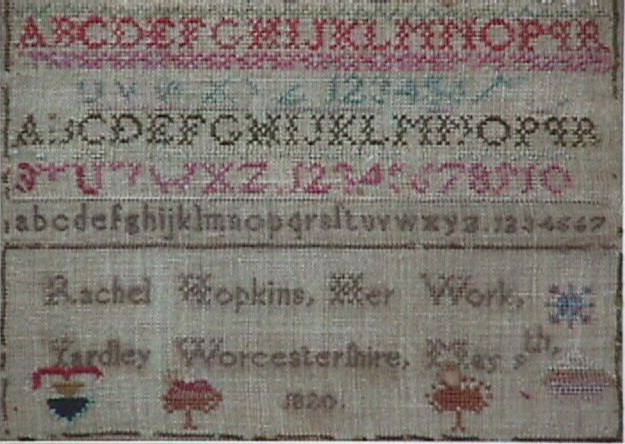 ABCDEFGHIJKLMNOPQR
U V W X Y Z 123456
ABCDEFGHIJKLMNOPQR
U V W X Z 12345678910
abcdefghijklmnopqrsſtuvwxyz.1234567
Rachel Hopkins, Her Work,
Yardley Worcesterſhire, May th,
1820.